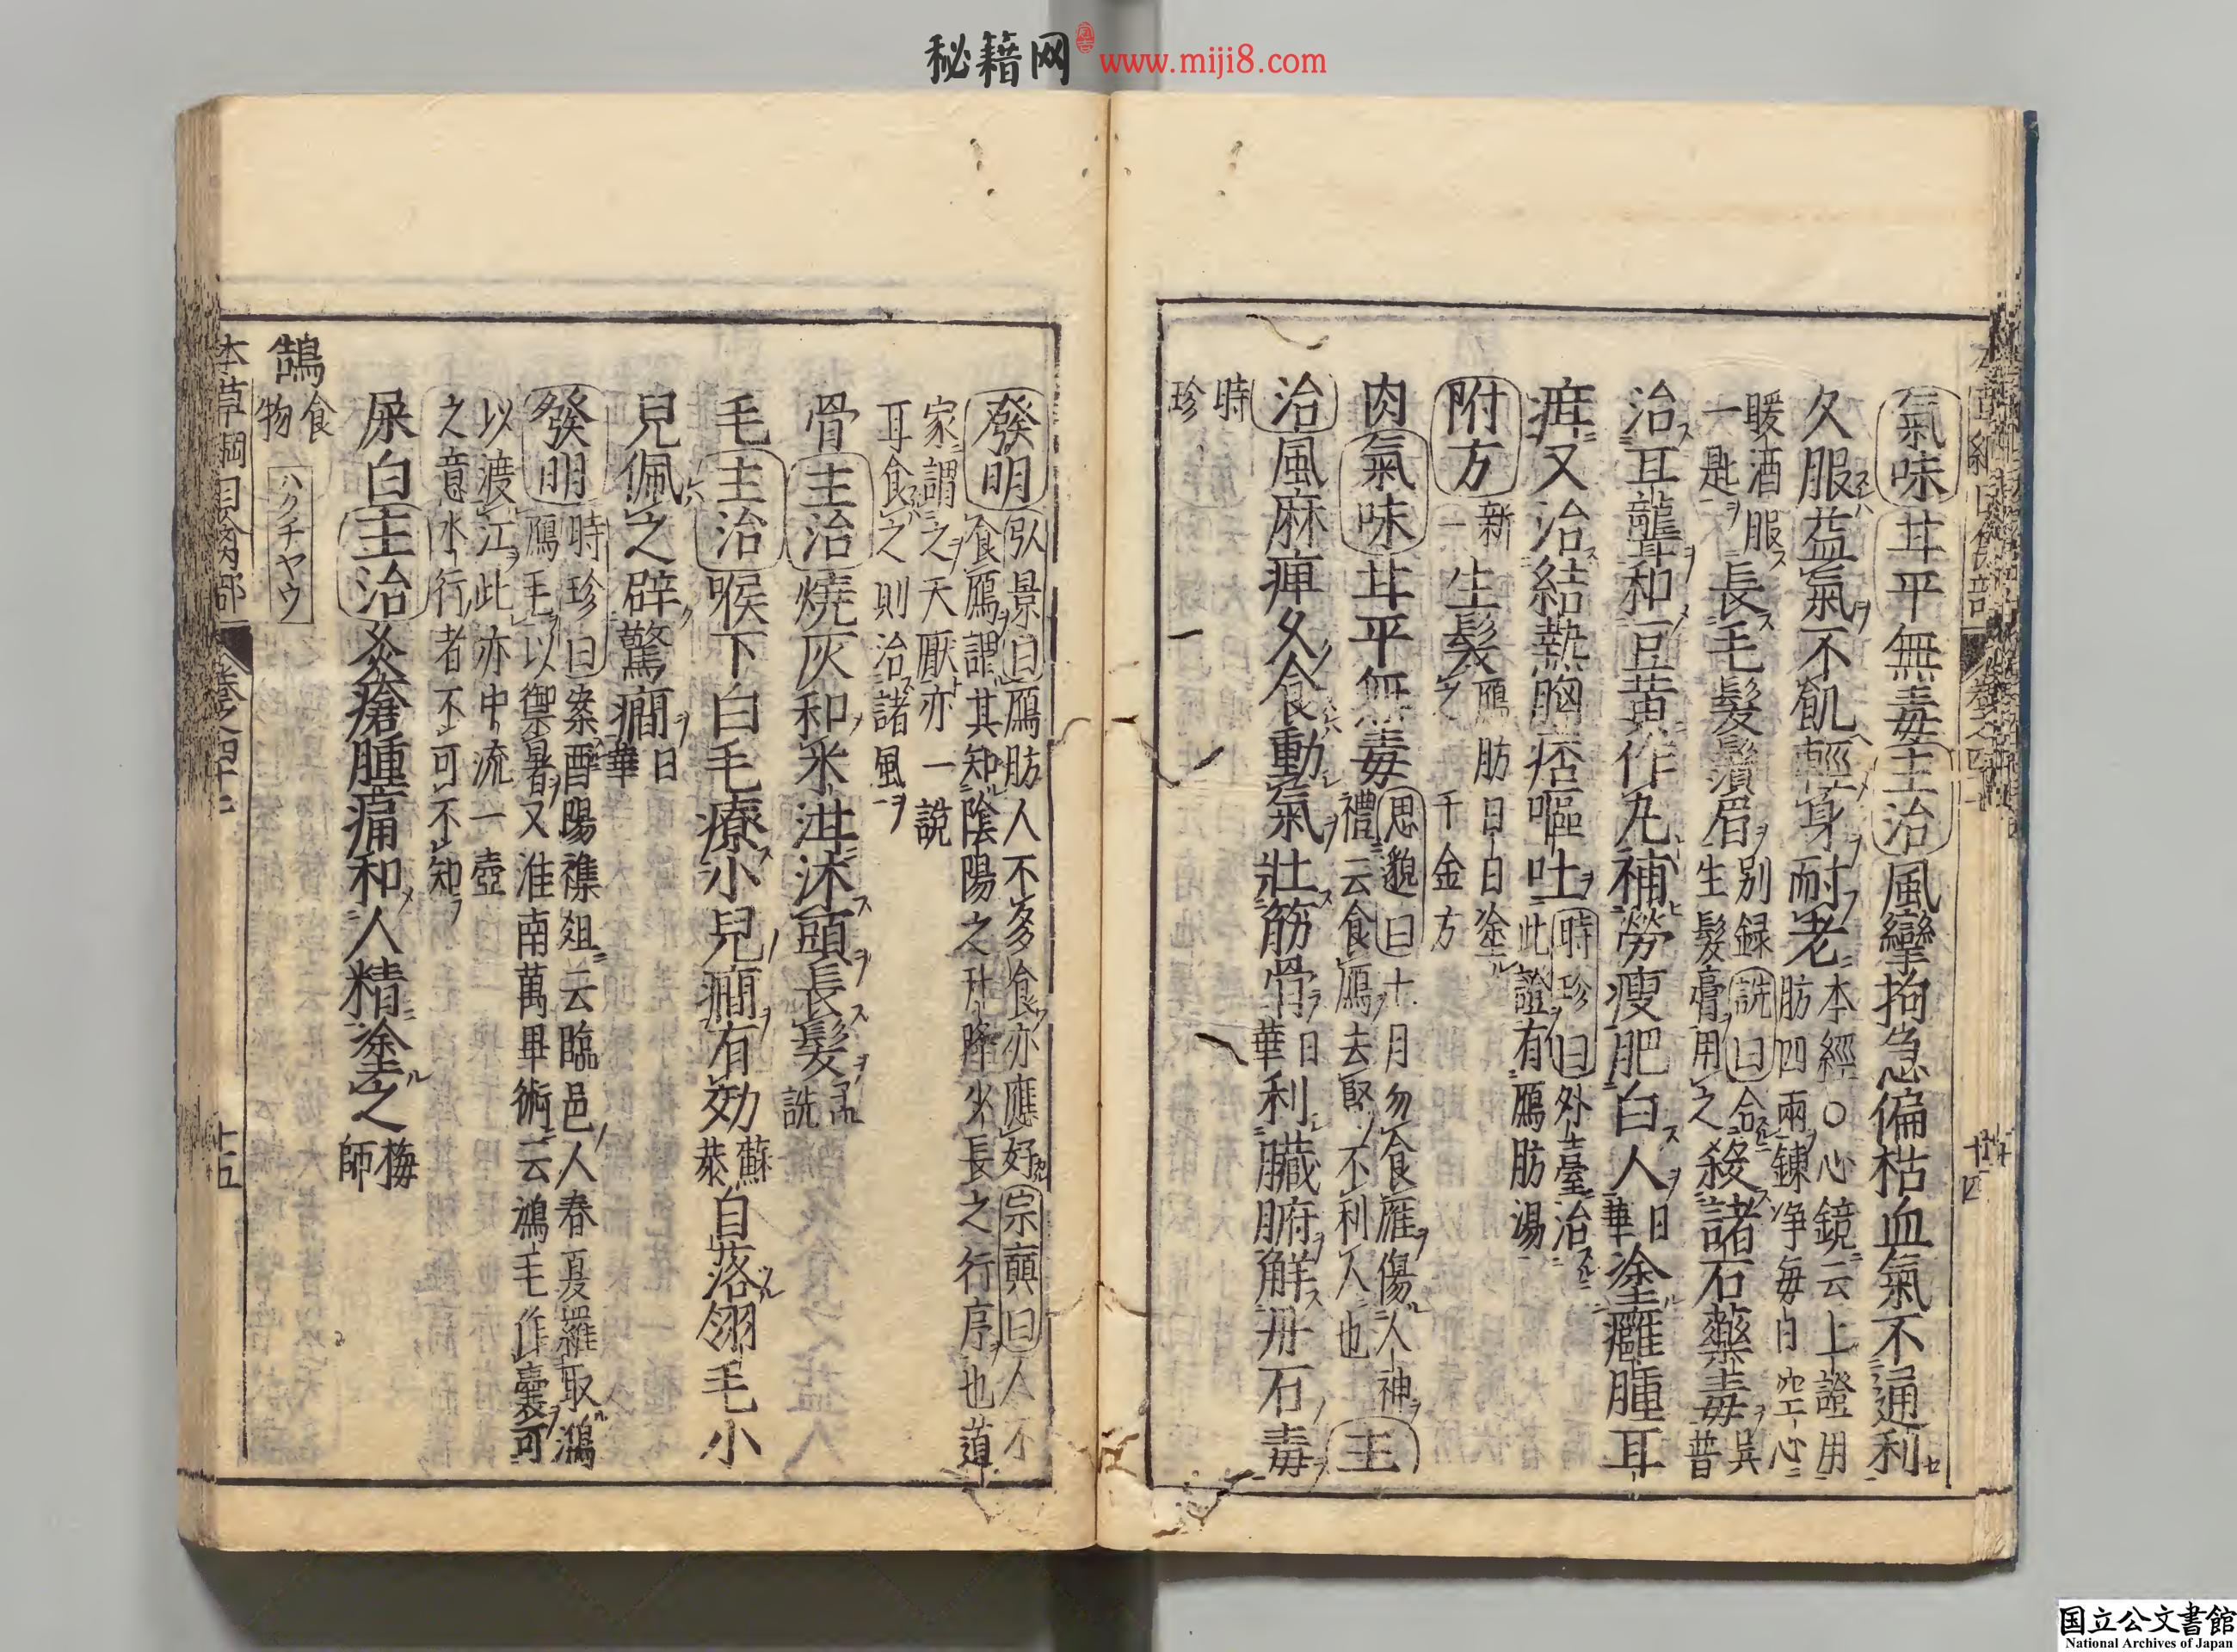 秘籍网 www.miji8.com
氣味甘平無毒主治風攣拘急偏枯血氣不通利
久服益氣不飢輕身耐老本經○心鏡云上證用肪四兩鍊净每日空心
暖酒服一匙長毛髮鬚眉别録詵曰合生髮膏用之殺諸石藥毒吳普
治耳聾和豆黄作丸補勞瘦肥白人日華塗癰腫耳
疳又治結熱胸痞嘔吐時珍曰外臺治此證有鴈肪湯
附方新一生髮鴈肪日日塗之千金方
肉氣味甘平無毒思邈曰七月勿食鴈傷人神禮云食鴈去腎不利人也主
治風麻痺久食動氣壯筋骨日華利臟腑解丹石毒
時珍
十四
發明弘景曰鴈肪人不多食亦應好宗奭曰人不食鴈謂其知陰陽之升降少長之行序也道
家謂之天厭亦一說耳食之則治諸風
骨主治燒灰和米泔沐頭長髮孟詵
毛主治喉下白毛療小兒癇有効蘇恭自落翎毛小
兒佩之辟驚癇日華
發明時珍曰案酉陽襍俎云臨邑人春夏羅取鴻鴈毛以禦暑又淮南萬畢術云鴻毛作囊可
以渡江此亦中流一壺之意水行者不可不知
屎白主治灸瘡腫痛和人精塗之梅師
鵠食物ハクチヤウ
本草綱目禽部 卷之四十七 十五
国立公文書館
National Archives of Japan